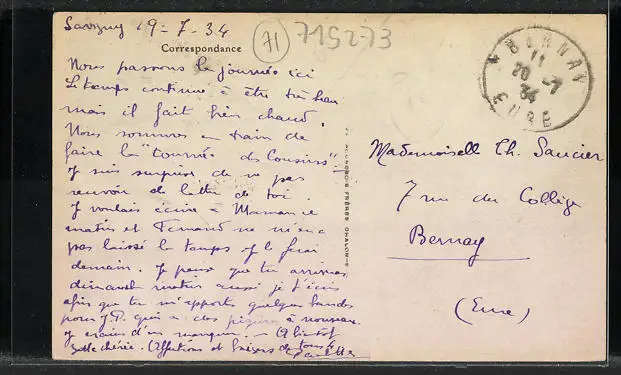 Savigny 19-7-34
71
7152-73
Correspondance
Nous passons la journée ici
Le temps continue à être très beau
mais il fait bien chaud.
Nous sommes en train de
faire la "tournée des Cousins".
Je suis surprise de ne pas
recevoir de lettre de toi.
Je voulais écrire à Maman ce
matin et Fernand ne m'en a
pas laissé le temps je le ferai
demain. Je pense que tu arriveras
dimanche matin aussi je t'écris
afin que tu m'apportes quelques bandes
pour J.P. qui a des piqûres à nouveau
je crains d'en manquer. A bientôt
chérie. Affections et baisers de tous
BERNAY
11
20 -7
34
EURE
FRÈRES CHALON-S
Mademoiselle Th. Saucier
7 rue du Collège
Bernay
(Eure)